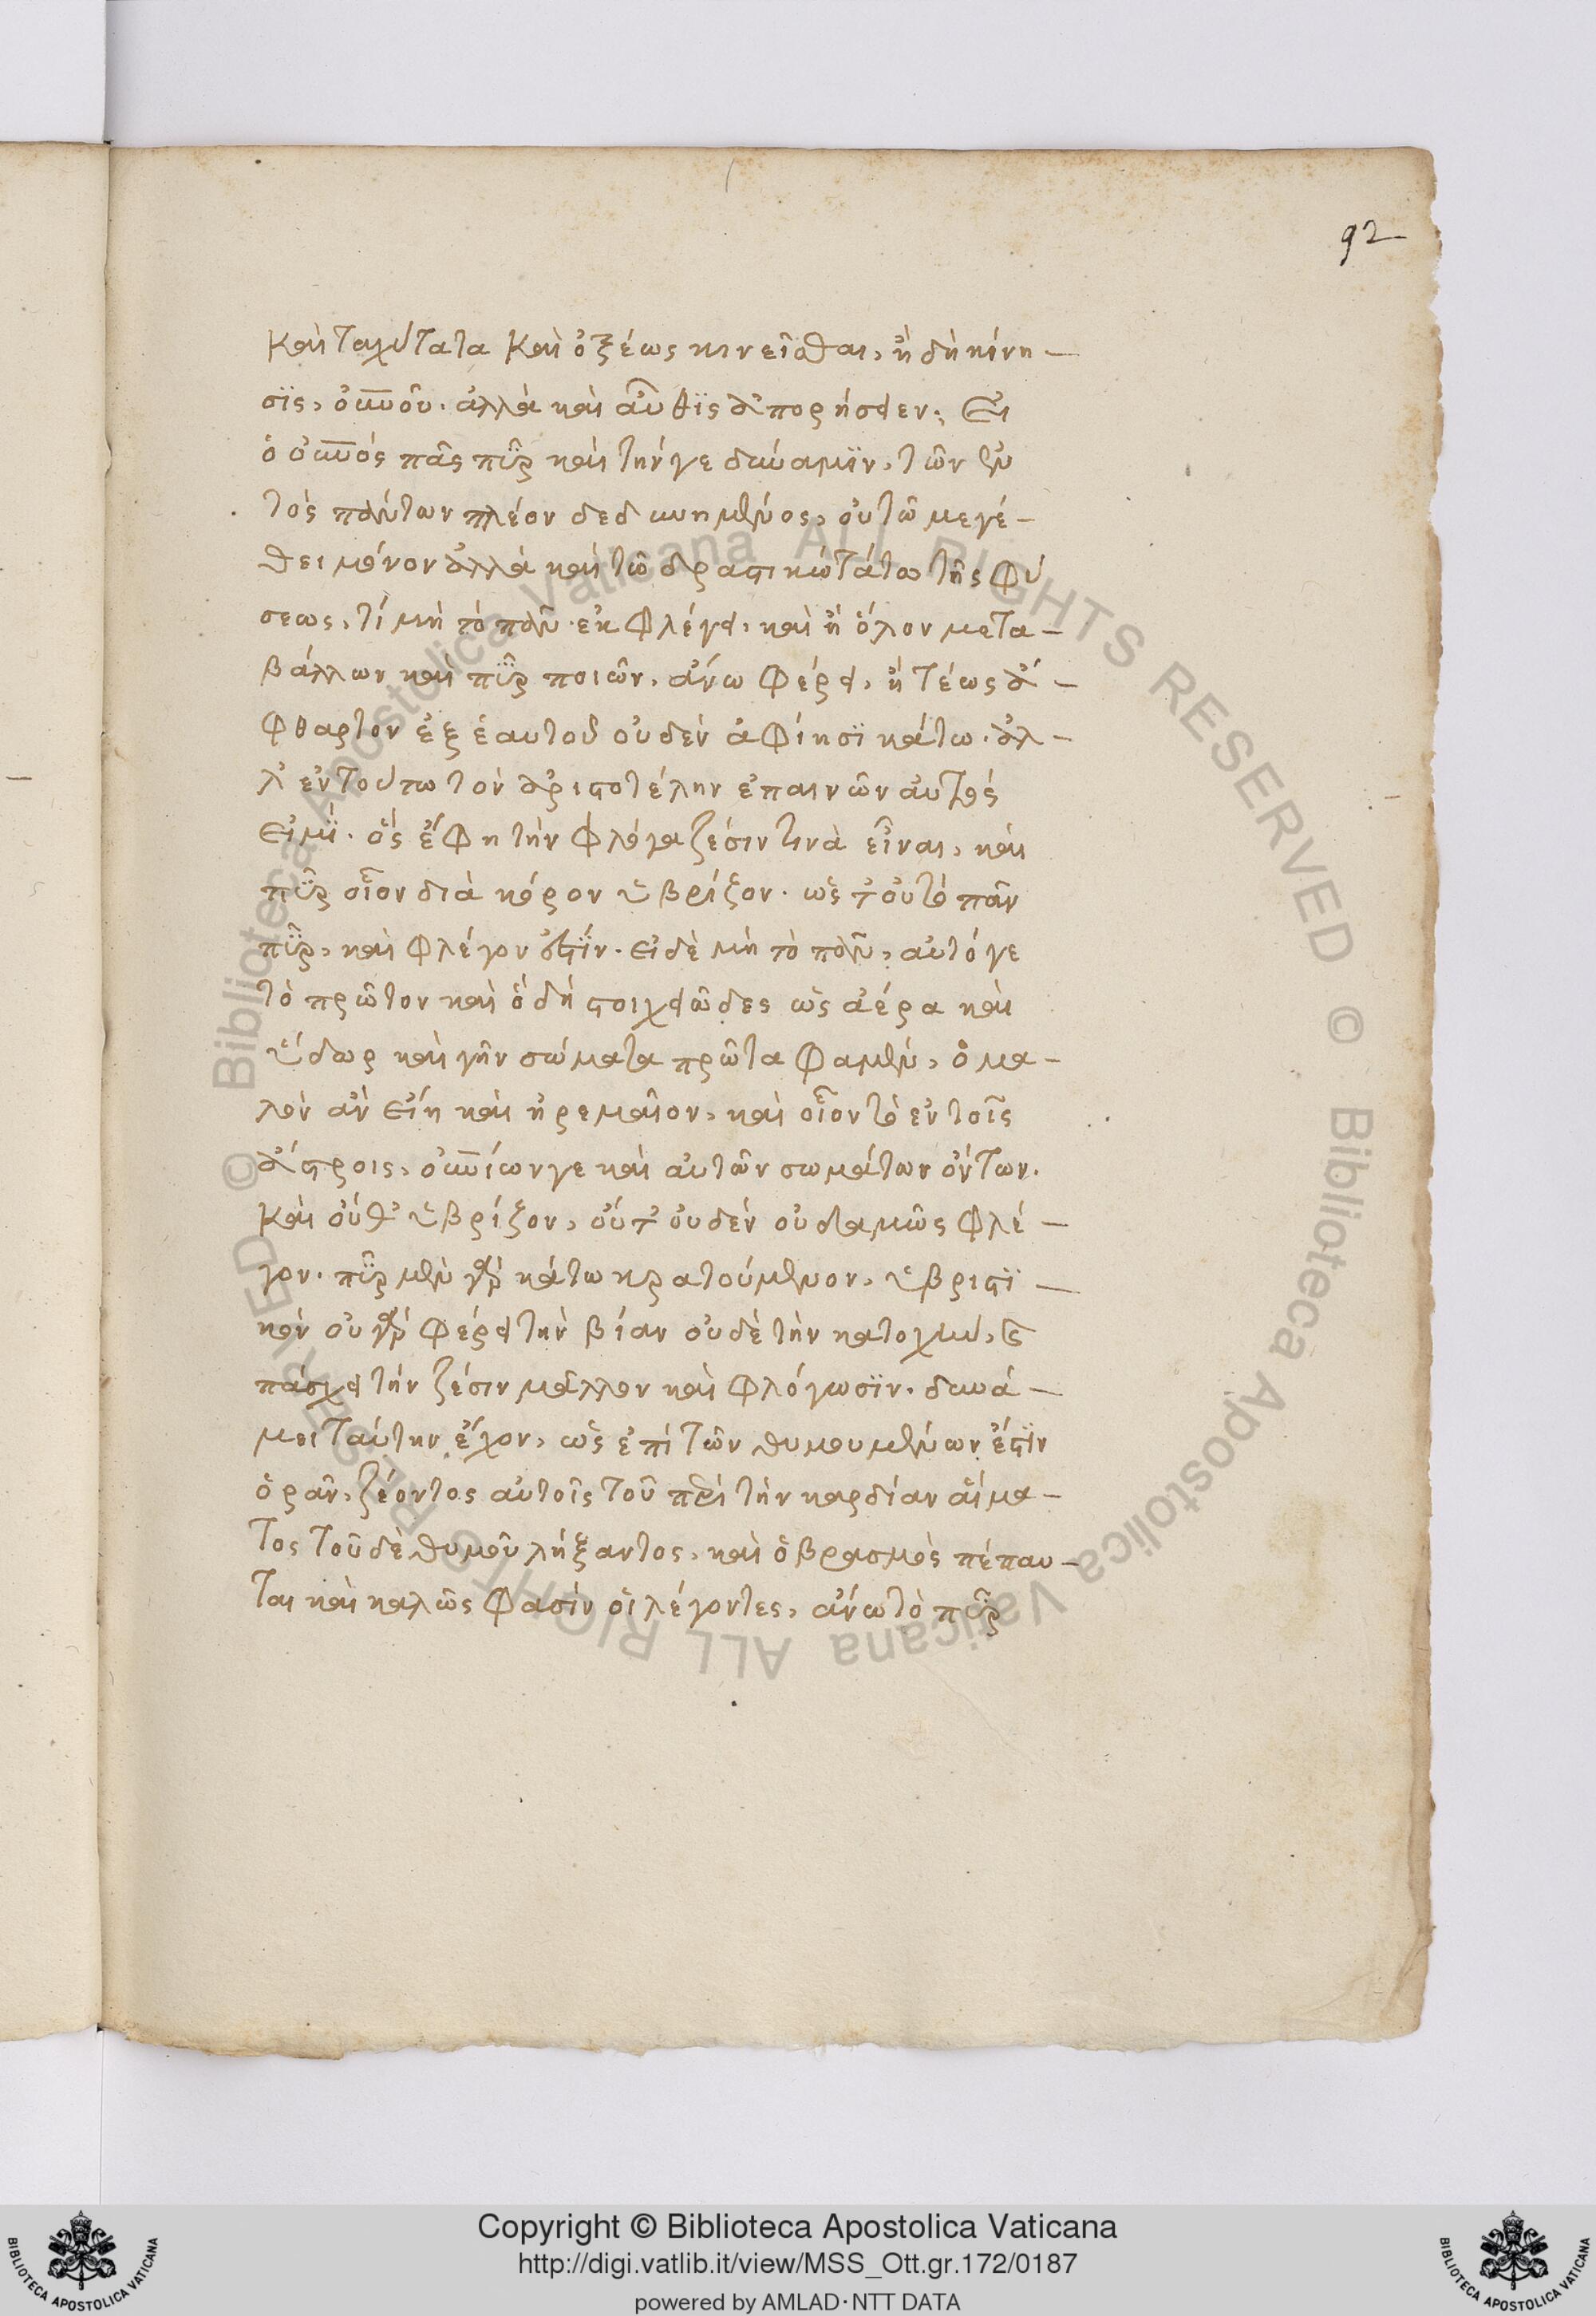 92
καὶ ταχύτατα καὶ ὀξέως κινεῖσθαι, ἢ δὴ κίνη-
σϊς, οὐνοῦ. ἀλλὰ καὶ αὖθϊς ἀπορήσειεν; Εἰ
ὁ οὐνός πᾶς πῦρ καὶ τήν γε δύναμϊν, τῶν ἐν
τὸς πάντων πλέον δεδυνημένος, οὐ τῶ μεγέ-
θει μόνον ἀλλὰ καὶ τῶ δραστικωτάτω τῆς φύ
σεως, τί μὴ τὸ πᾶν ἐκφλέγει, καὶ ἢ ὅλον μετα-
βάλλων καὶ πῦρ ποιῶν, ἄνω φέρει, ἢ τέως ἄ-
φθαρτον ἐξ ἑαυτοῦ οὐδὲν ἀφίησϊ κάτω. ἀλ-
λ' ἐν τούτω τὸν ἀριστοτέλην ἐπαινῶν αὐτός
εἰμϊ. ὅς ἔφη τὴν φλόγα ζέσιν τινὰ εἶναι, καὶ
πῦρ οἷον διὰ κόρον ὑβρίζον. ὡς τ' οὐ τὸ πᾶν
πῦρ, καὶ φλέγον ἐστϊν. εἰ δὲ μὴ τὸ πᾶν, αὐτό γε
τὸ πρῶτον καὶ ὃ δὴ στοιχειῶδες ὡς ἀέρα καὶ
ὕδωρ καὶ γῆν σώματα πρῶτα φαμὲν, ὁμα-
λὸν ἂν εἴη καὶ ἠρεμαῖον, καὶ οἷον τὸ ἐν τοῖς
ἄστροις, οὐνίων γε καὶ αὐτῶν σωμάτων ὄντων.
καὶ οὔθ' ὑβρίζον, οὔτ' οὐδὲν οὐδαμῶς φλέ-
γον. πῦρ μὲν γὰρ κάτω κρατούμενον, ὑβριστϊ-
κὸν οὐ γὰρ φέρει τὴν βίαν οὐδὲ τὴν κατοχὴν, καὶ
πάσχει τὴν ζέσιν μᾶλλον καὶ φλόγωσϊν. δυνά-
μει ταύτην ἔχον, ὡς ἐπὶ τῶν θυμουμένων ἔστϊν
ὁρᾶν, ζέοντος αὐτοῖς τοῦ περὶ τὴν καρδίαν αἵμα-
τος τοῦ δὲ θυμοῦ λήξαντος, καὶ ὁ βρασμὸς πέπαυ-
ται καὶ καλῶς φασὶν οἱ λέγοντες, ἄνω τὸ πῦρ
© Biblioteca Apostolica Vaticana ALL RIGHTS RESERVED
© Biblioteca Apostolica Vaticana ALL RIGHTS RESERVED
Copyright © Biblioteca Apostolica Vaticana
http://digi.vatlib.it/view/MSS_Ott.gr.172/0187
powered by AMLAD·NTT DATA
BIBLIOTECA APOSTOLICA VATICANA
BIBLIOTECA APOSTOLICA VATICANA